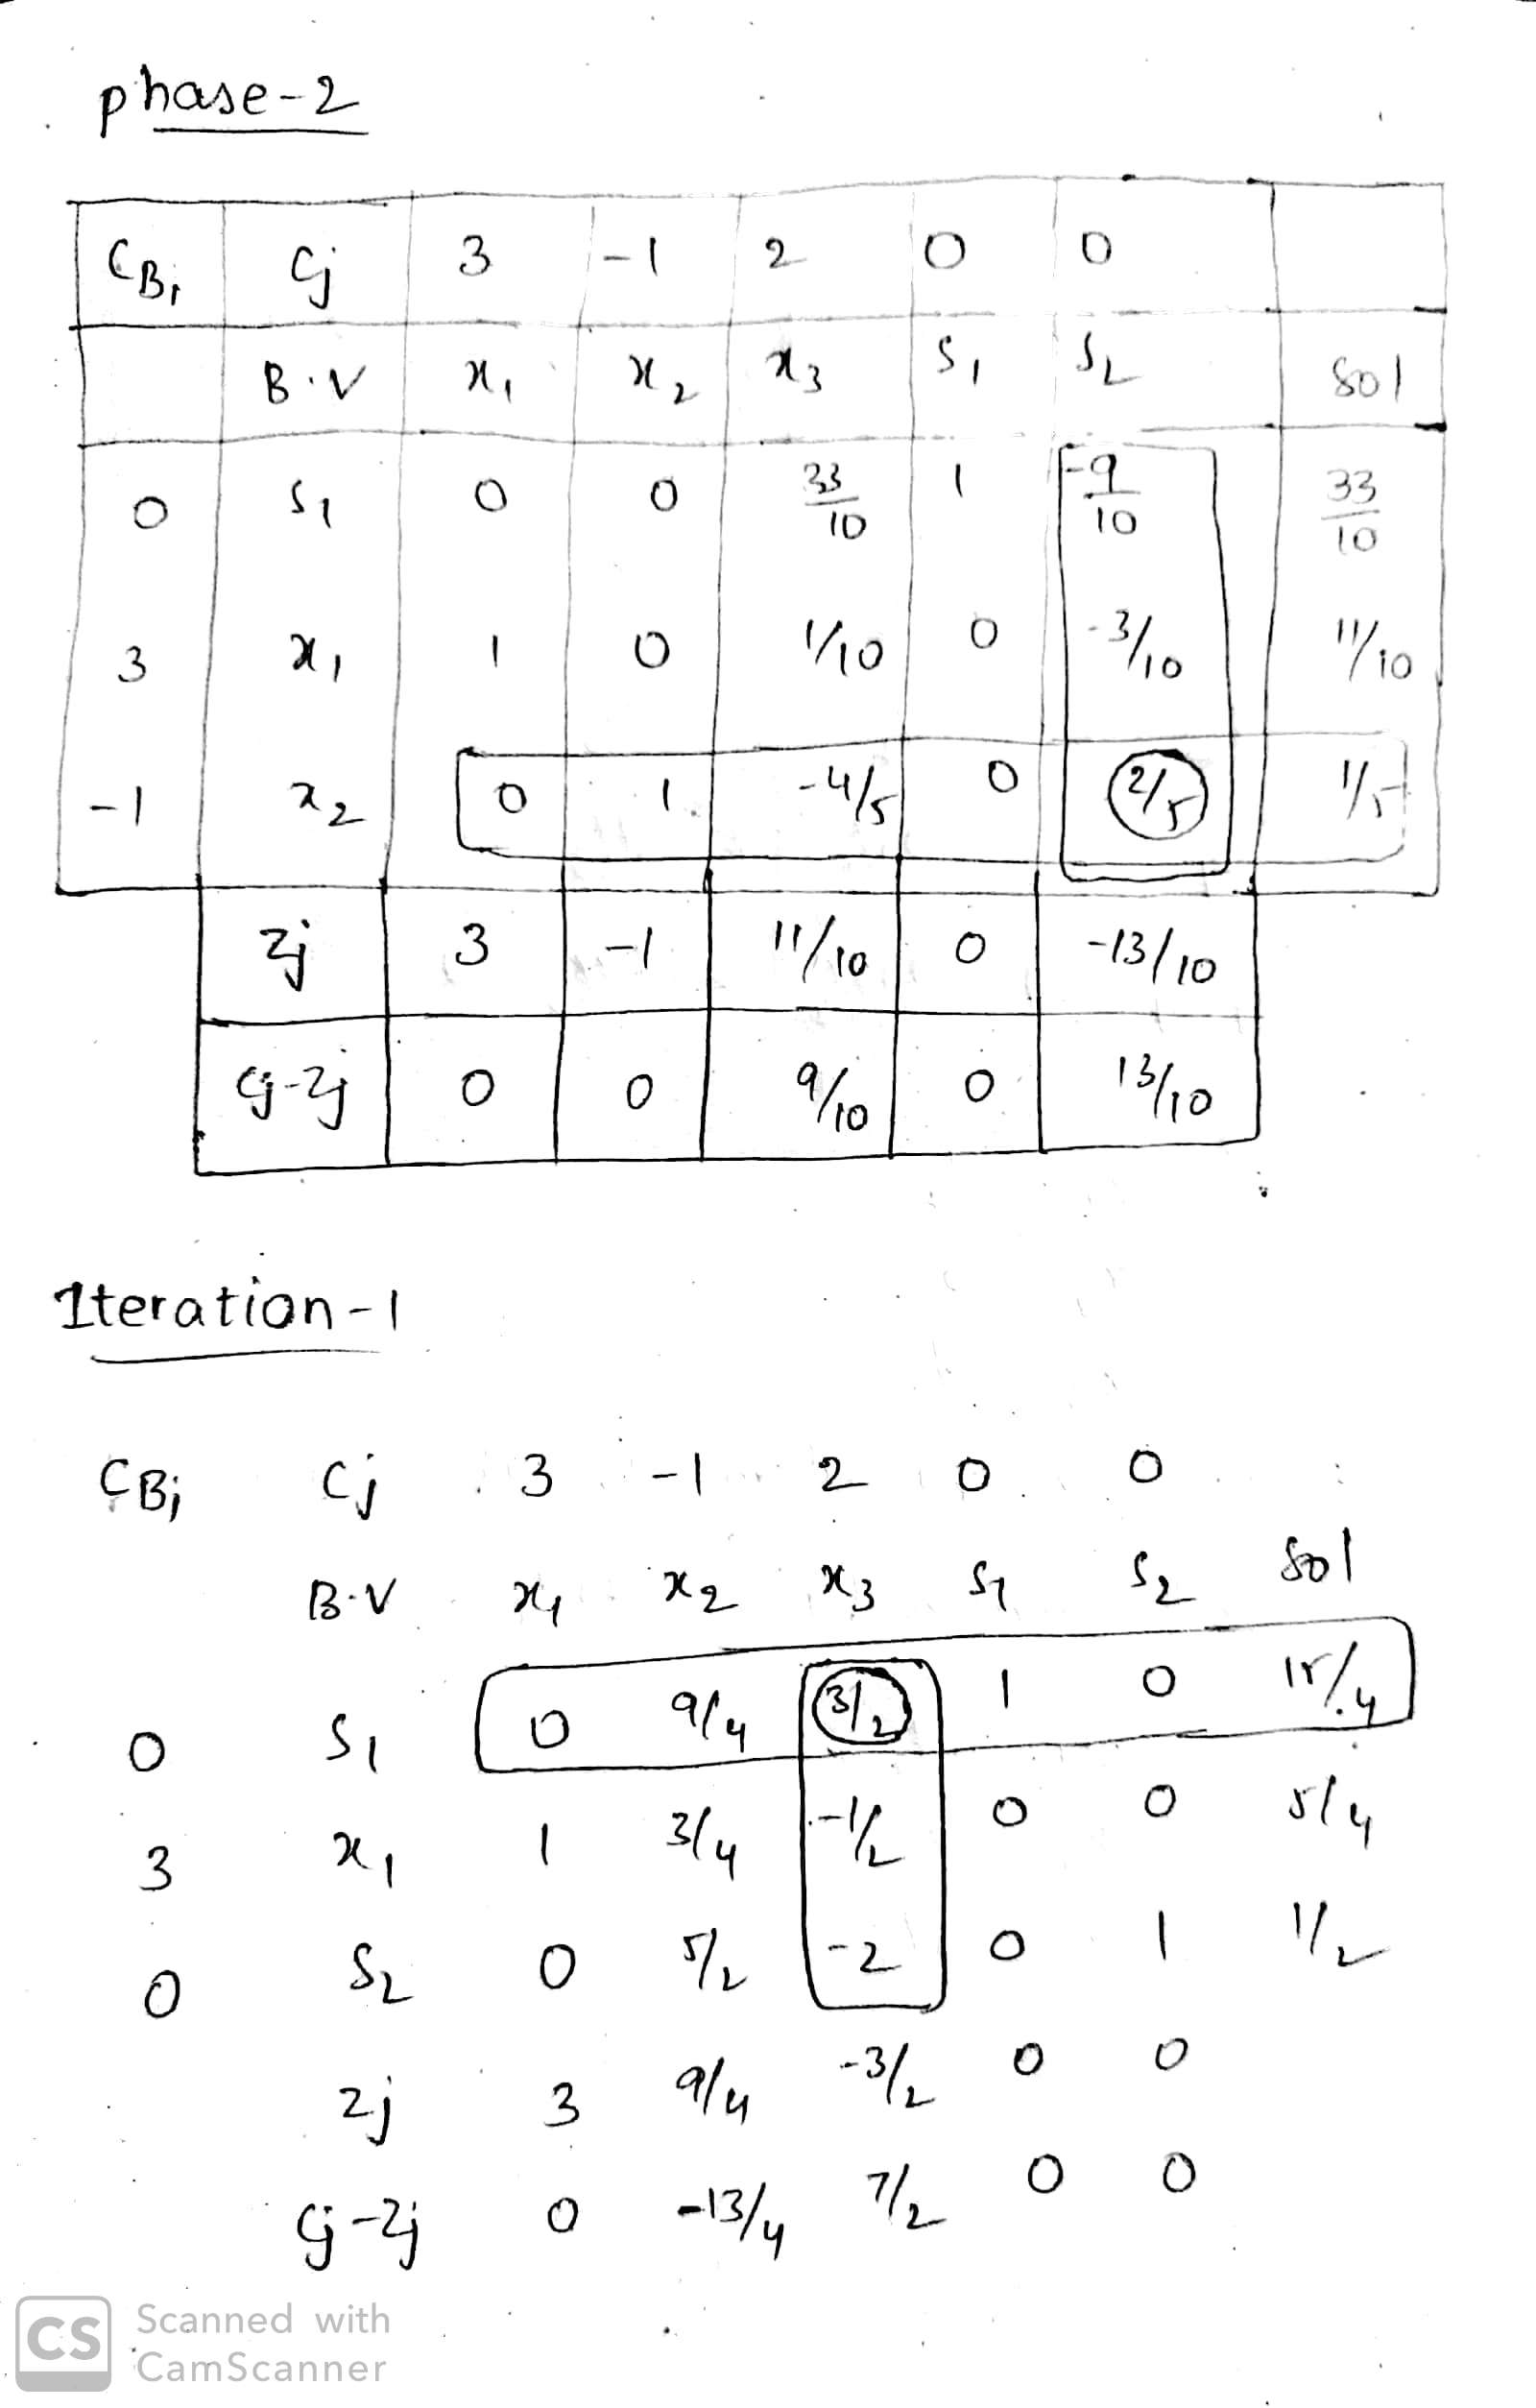 phase-2
CBi Cj 3 -1 2 0 0
B.V x1 x2 x3 S1 S2 Sol
0 S1 0 0 33/10 1 -9/10 33/10
3 x1 1 0 1/10 0 -3/10 11/10
-1 x2 0 1 -4/5 0 2/5 1/5
Zj 3 -1 11/10 0 -13/10
Cj-Zj 0 0 9/10 0 13/10
Iteration-1
CBi Cj 3 -1 2 0 0
B.V x1 x2 x3 S1 S2 Sol
0 S1 0 9/4 3/2 1 0 15/4
3 x1 1 3/4 -1/2 0 0 5/4
0 S2 0 5/2 -2 0 1 1/2
Zj 3 9/4 -3/2 0 0
Cj-Zj 0 -13/4 7/2 0 0
CS Scanned with
CamScanner